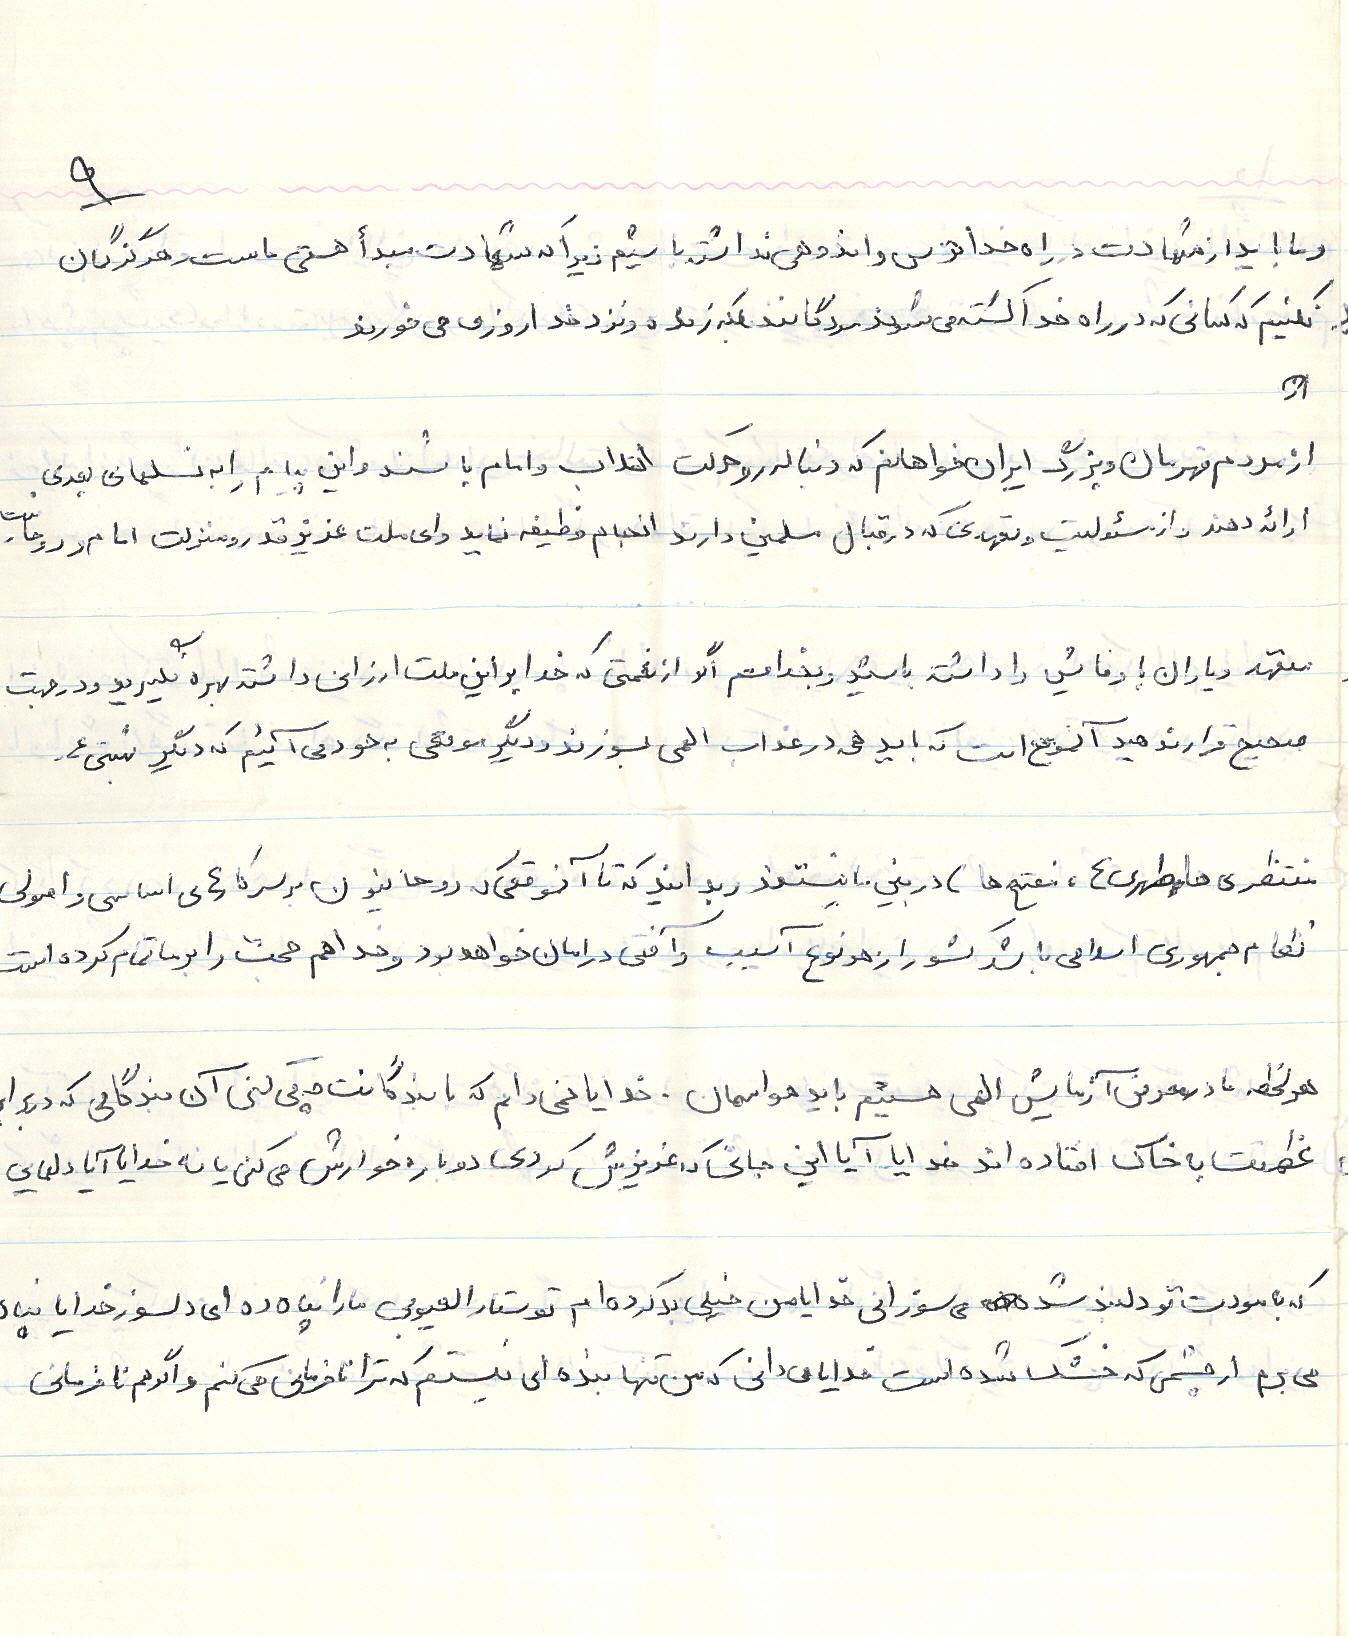 ۹
و ما باید از شهادت در راه خدا ترس و اندوهی نداشته باشیم زیرا که شهادت مبدأ هستی ماست و هرگز گمان
نکنیم که کسانی که در راه خدا کشته می شوند مردگانند بلکه زنده و نزد خدا روزی می خورند
از
از مردم قهرمان و بزرگ ایران خواهانم که دنباله رو حرکت انقلاب و امام باشند و این پیام را به نسلهای بعدی
ارائه دهند و از مسئولیت و تعهدی که در قبال مسلمین دارند انجام وظیفه نمایند و ای ملت عزیز قدر و منزلت امام و روحانیت
متعهد و یاران با وفایش را داشته باشید و بخدا قسم اگر از نعمتی که خدا بر این ملت ارزانی داشته بهره نگیرید و در جهت
صحیح قرار ندهید آنموقع است که باید همه در عذاب الهی بسوزند و دیگر موقعی به خود می آئیم که دیگر بهشتی ها
منتظری ها مطهری ها ، مفتح ها در بین ما نیستند و بدانید که تا آنوقعی که روحانیون بر سر کارهای اساسی و اصولی
نظام جمهوری اسلامی باشد کشور از هر نوع آسیب و آفتی در امان خواهد بود و خدا هم حجت را بر ما تمام کرده است
هر لحظه ما در معرض آزمایش الهی هستیم باید هواسمان . خدایا نمی دانم که با بندگانت چه می کنی آن بندگانی که در برابر
عظمت به خاک افتاده اند خدایا آیا این جانی که عزیزش کردی دوباره خوارش می کنی یا نه خدایا آیا دلهایی
که با مودت تو دلبند شده می سوزانی خدایا من خیلی بد کرده ام تو ستار العیوبی ما را پناه ده ای دلسوز خدایا پناه
می برم از چشمی که خشک شده است خدایا می دانی که من تنها بنده ای نیستم که ترا نافرمانی می کنم و اگر هم نافرمانی